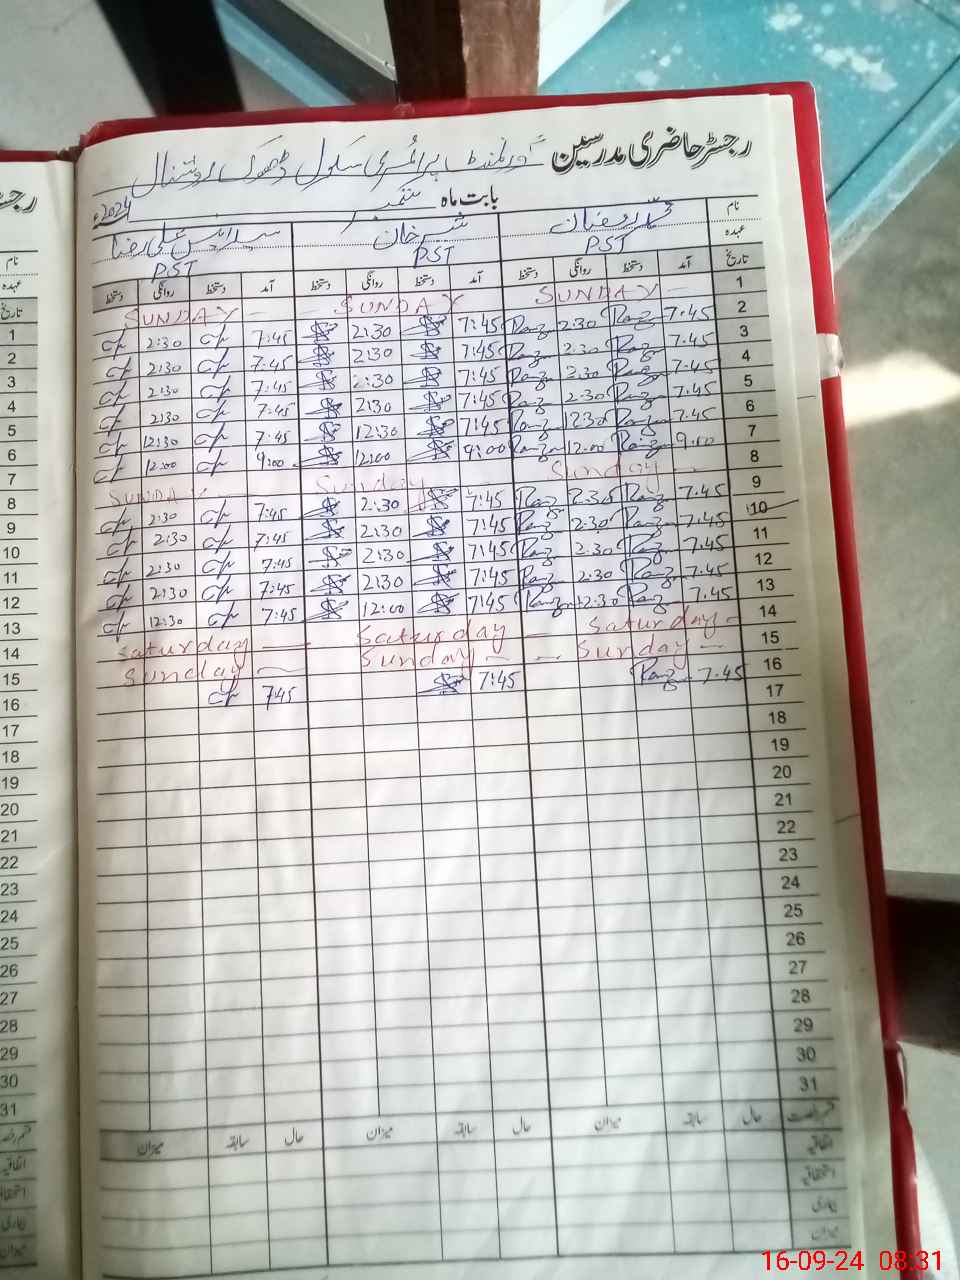 رجسٹر حاضری مدرسین گورنمنٹ پرائمری سکول ڈھوک
بابت ماہ ستمبر 2024ء
نام محمد رمضان شیر خان سید انیس علی رضا
عہدہ PST PST PST
تاریخ آمد دستخط روانگی دستخط آمد دستخط روانگی دستخط آمد دستخط روانگی دستخط
1 SUNDAY SUNDAY SUNDAY
2 7.45 Ramz 2:30 Ramz 7:45 2:30 7:45 2:30
3 7.45 Ramz 2:30 Ramz 7:45 2:30 7:45 2:30
4 7.45 Ramz 2:30 Ramz 7:45 2:30 7:45 2:30
5 7.45 Ramz 2:30 Ramz 7:45 2:30 7:45 2:30
6 7.45 Ramz 12:30 Ramz 7:45 12:30 7:45 12:30
7 9:00 Ramz 12:00 Ramz 9:00 12:00 9:00 12:00
8 Sunday Sunday SUNDAY
9 7.45 Ramz 2:30 Ramz 7:45 2:30 7:45 2:30
10 7.45 Ramz 2:30 Ramz 7:45 2:30 7:45 2:30
11 7.45 Ramz 2:30 Ramz 7:45 2:30 7:45 2:30
12 7.45 Ramz 2:30 Ramz 7:45 2:30 7:45 2:30
13 7.45 Ramz 12:30 Ramz 7:45 12:00 7:45 12:30
14 Saturday Saturday Saturday
15 Sunday Sunday Sunday
16 7.45 Ramz 7:45 7:45
17
18
19
20
21
22
23
24
25
26
27
28
29
30
31
قسم رخصت حال سابقہ میزان حال سابقہ میزان حال سابقہ میزان
اتفاقیہ
استحقاقیہ
بیماری
میزان
رجسٹر
نام
عہدہ
تاریخ
1
2
3
4
5
6
7
8
9
10
11
12
13
14
15
16
17
18
19
20
21
22
23
24
25
26
27
28
29
30
31
قسم رخصت
اتفاقیہ
بیماری
میزان
16-09-24 08:31